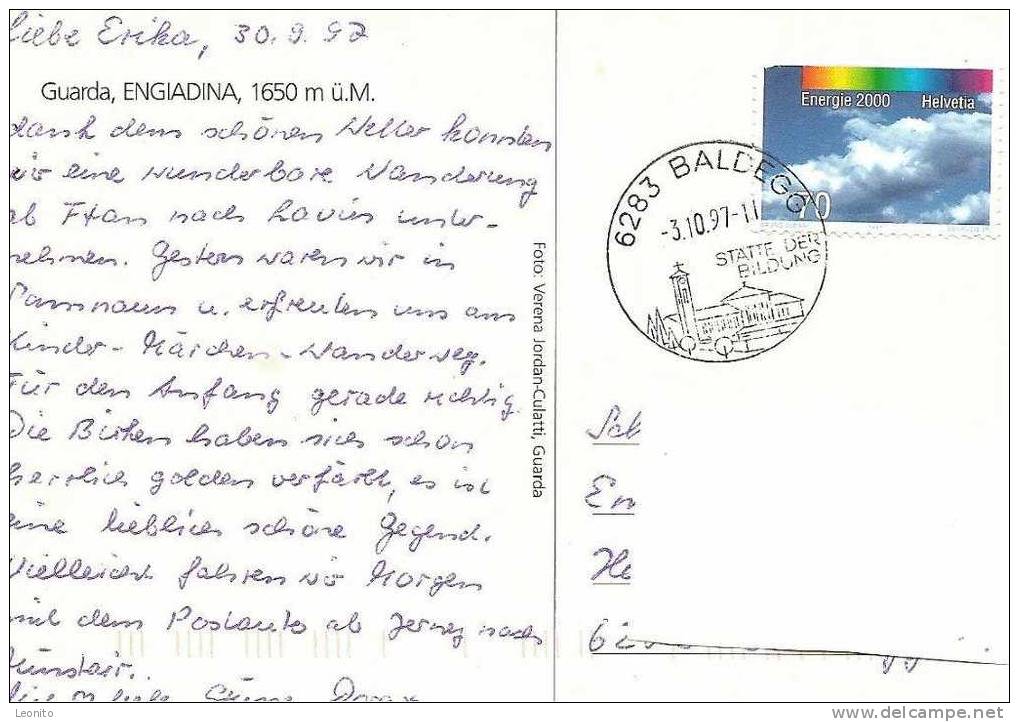 liebe Erika, 30.9.97
Guarda, ENGIADINA, 1650 m ü.M.
dank dem schönen Wetter konnten
wir eine wunderbare Wanderung
ab Ftan nach Lavin unter-
nehmen. Gestern waren wir in
Samnaun u. erfreuten uns am
Kinder-Märchen-Wanderweg.
Für den Anfang gerade richtig.
Die Birken haben sich schon
herrlich golden verfärbt, es ist
eine lieblich schöne Gegend.
Vielleicht fahren wir Morgen
mit dem Postauto ab Zernez nach
Münstair.
liebe Grüsse
Foto: Verena Jordan-Culatti, Guarda
Energie 2000 Helvetia
70
6283 BALDEGG
-3.10.97-11
STÄTTE DER
BILDUNG
Sch
Em
He
6
Leonito
delcampe.net